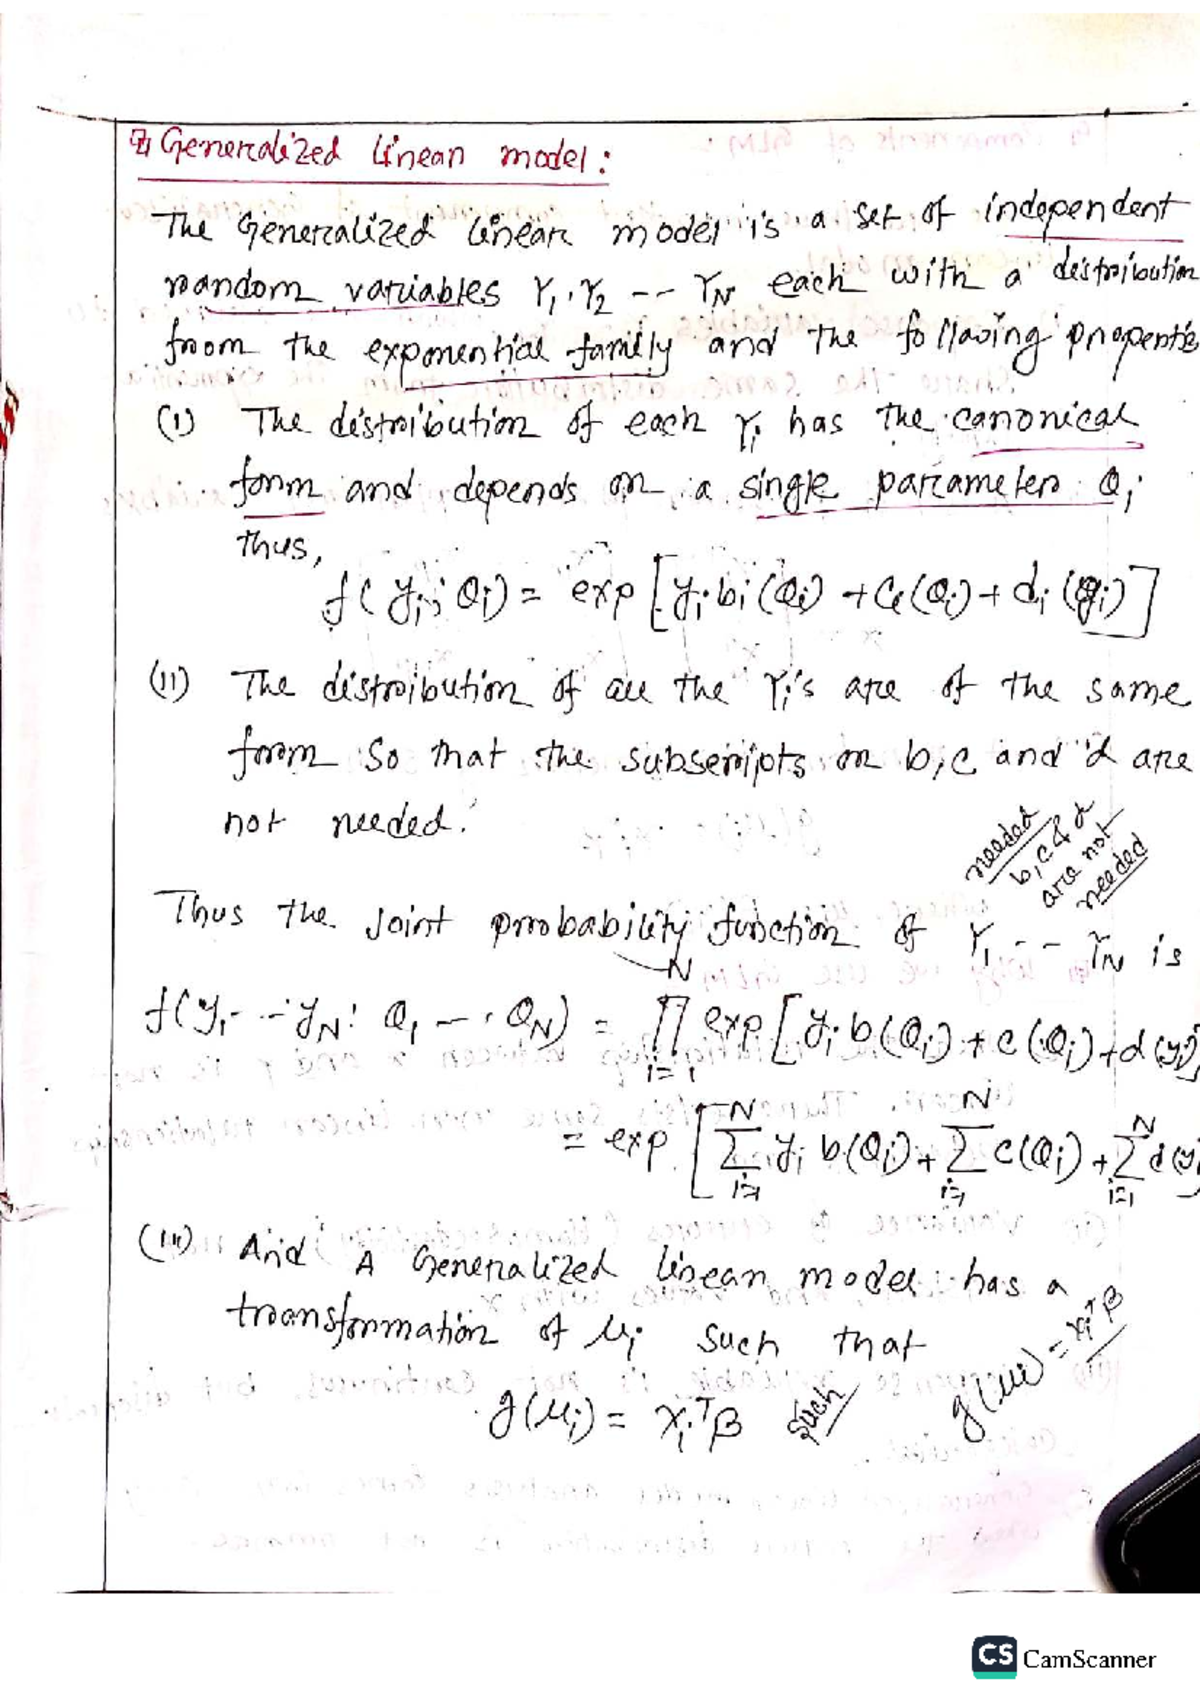 Generalized linear model:
The Generalized linear model is a set of independent
random variables Y₁, Y₂ -- Y_N each with a distribution
from the exponential family and the following propertie
(i) The distribution of each Yᵢ has the canonical
form and depends on a single parameters θᵢ
thus,
f(yᵢ; θᵢ) = exp [yᵢ bᵢ(θᵢ) + cᵢ(θᵢ) + dᵢ(yᵢ)]
(ii) The distribution of all the Yᵢ's are of the same
form so that the subscripts on b, c and d are
not needed.
needed
b, c & d
are not
needed
Thus the Joint probability function of Y₁ -- Y_N is
f(y₁ -- y_N: θ₁ -- θ_N) = ∏ᵢ₌₁ᴺ exp [yᵢ b(θᵢ) + c(θᵢ) + d(yᵢ)
= exp [∑ᵢ₌₁ᴺ yᵢ b(θᵢ) + ∑ᵢ₌₁ᴺ c(θᵢ) + ∑ᵢ₌₁ᴺ d(yᵢ
(iii) And A Generalized linear model has a
transformation of μᵢ such that
g(μᵢ) = xᵢᵀβ such
g(μᵢ) = xᵢᵀβ
CS CamScanner